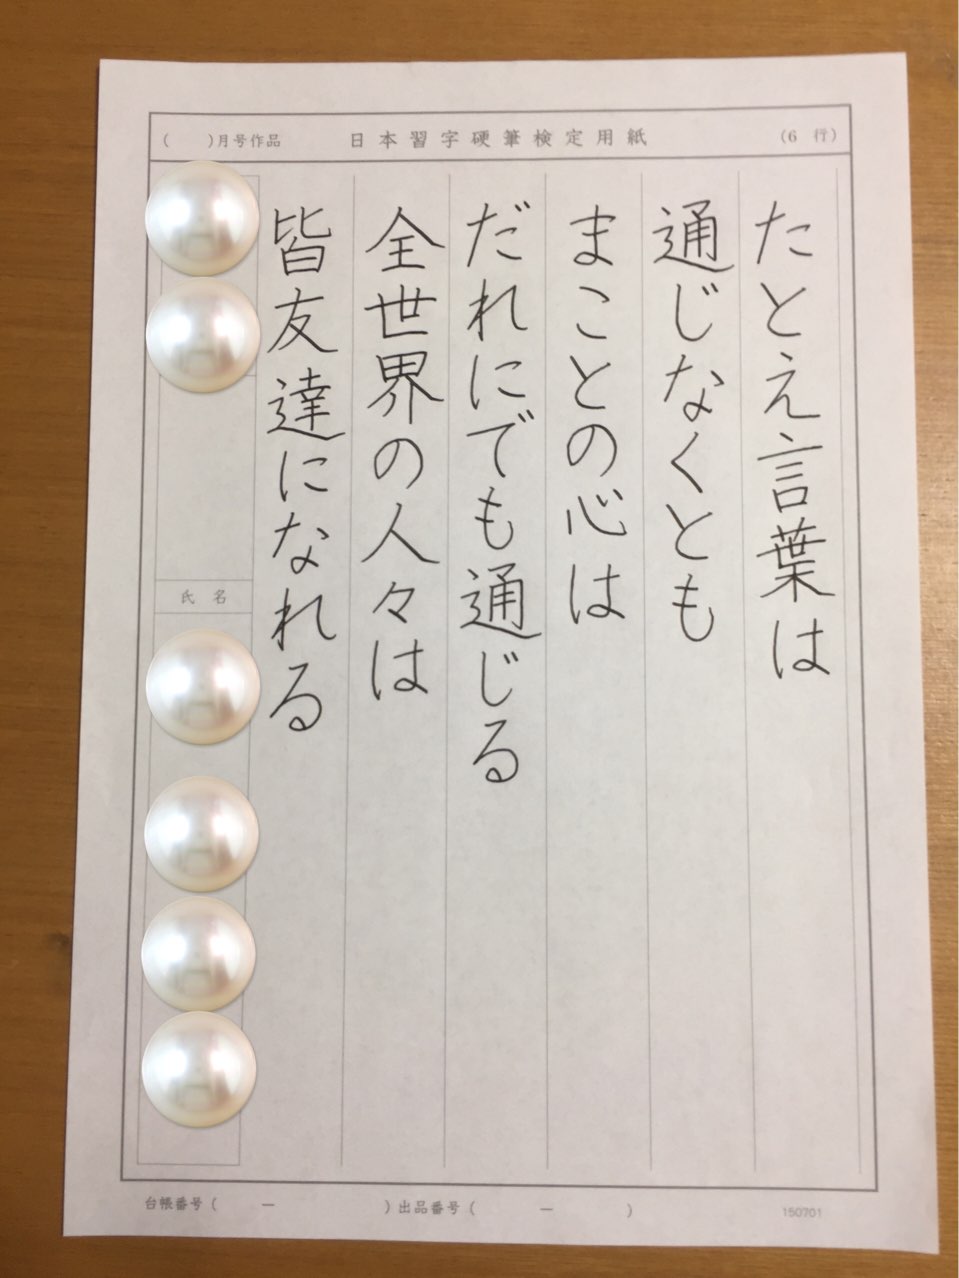 （　　）月号作品　日本習字硬筆検定用紙　（6　行）
たとえ言葉は
通じなくとも
まことの心は
だれにでも通じる
全世界の人々は
皆友達になれる
氏　名
台帳番号（　　－　　）出品番号（　　－　　）　150701